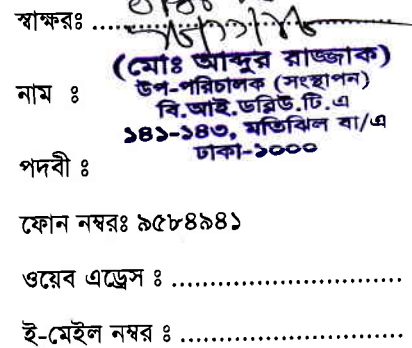 স্বাক্ষরঃ ..................
(মোঃ আব্দুর রাজ্জাক)
নাম ঃ উপ-পরিচালক (সংস্থাপন)
বি.আই.ডব্লিউ.টি.এ
১৪১-১৪৩, মতিঝিল বা/এ
ঢাকা-১০০০
পদবী ঃ
ফোন নম্বরঃ ৯৫৮৪৯৪১
ওয়েব এড্রেস ঃ ..............................
ই-মেইল নম্বর ঃ ..............................